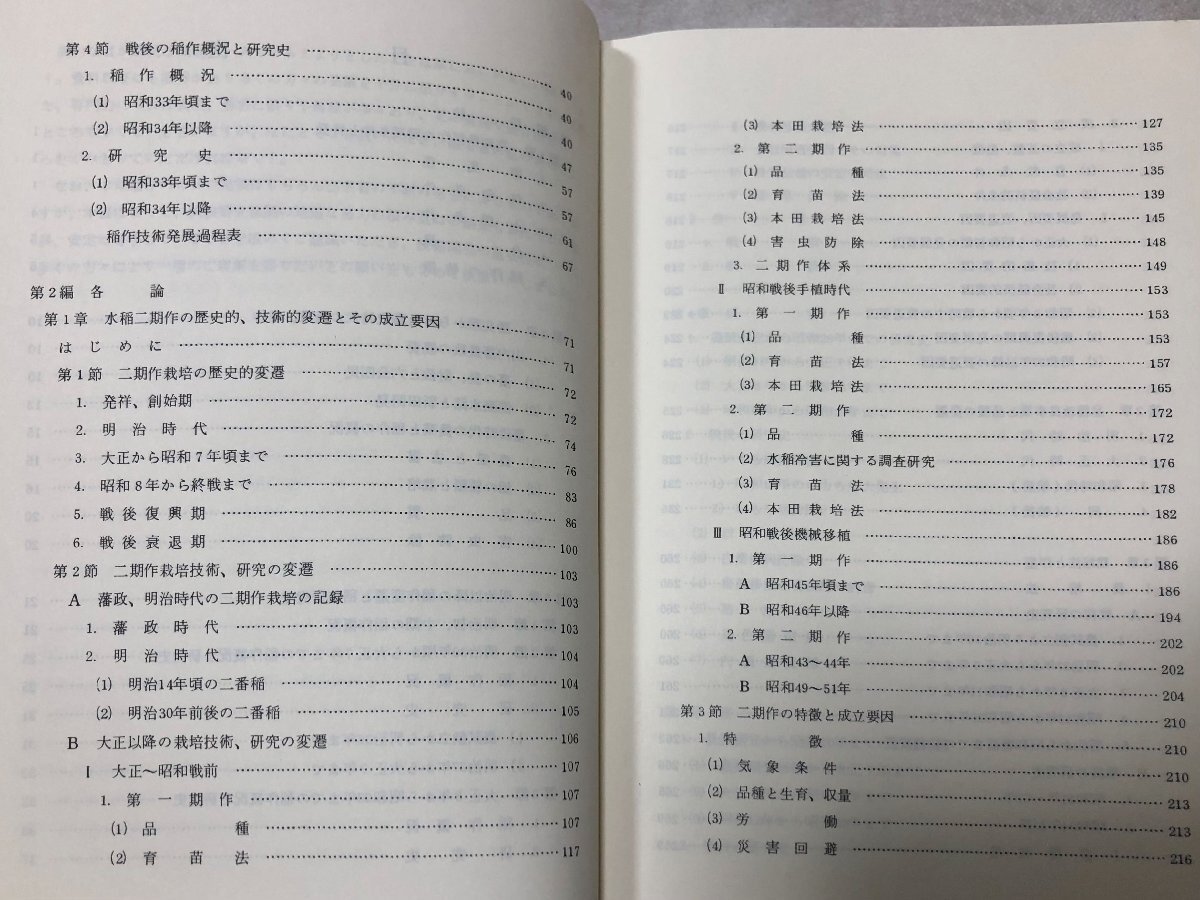 第4節 戦後の稲作概況と研究史 …… 40
1. 稲作概況 …… 40
(1) 昭和33年頃まで …… 40
(2) 昭和34年以降 …… 47
2. 研究史 …… 57
(1) 昭和33年頃まで …… 57
(2) 昭和34年以降 …… 61
稲作技術発展過程表 …… 67
第2編 各論
第1章 水稲二期作の歴史的、技術的変遷とその成立要因 …… 71
はじめに …… 71
第1節 二期作栽培の歴史的変遷 …… 72
1. 発祥、創始期 …… 72
2. 明治時代 …… 74
3. 大正から昭和7年頃まで …… 76
4. 昭和8年から終戦まで …… 83
5. 戦後復興期 …… 86
6. 戦後衰退期 …… 100
第2節 二期作栽培技術、研究の変遷 …… 103
A 藩政、明治時代の二期作栽培の記録 …… 103
1. 藩政時代 …… 103
2. 明治時代 …… 104
(1) 明治14年頃の二番稲 …… 104
(2) 明治30年前後の二番稲 …… 105
B 大正以降の栽培技術、研究の変遷 …… 106
Ⅰ 大正〜昭和戦前 …… 107
1. 第一期作 …… 107
(1) 品種 …… 107
(2) 育苗法 …… 117
(3) 本田栽培法 …… 127
2. 第二期作 …… 135
(1) 品種 …… 135
(2) 育苗法 …… 139
(3) 本田栽培法 …… 145
(4) 害虫防除 …… 148
3. 二期作体系 …… 149
Ⅱ 昭和戦後手植時代 …… 153
1. 第一期作 …… 153
(1) 品種 …… 153
(2) 育苗法 …… 157
(3) 本田栽培法 …… 165
2. 第二期作 …… 172
(1) 品種 …… 172
(2) 水稲冷害に関する調査研究 …… 176
(3) 育苗法 …… 178
(4) 本田栽培法 …… 182
Ⅲ 昭和戦後機械移植 …… 186
1. 第一期作 …… 186
A 昭和45年頃まで …… 186
B 昭和46年以降 …… 194
2. 第二期作 …… 202
A 昭和43〜44年 …… 202
B 昭和49〜51年 …… 204
第3節 二期作の特徴と成立要因 …… 210
1. 特徴 …… 210
(1) 気象条件 …… 210
(2) 品種と生育、収量 …… 213
(3) 労働 …… 213
(4) 災害回避 …… 216